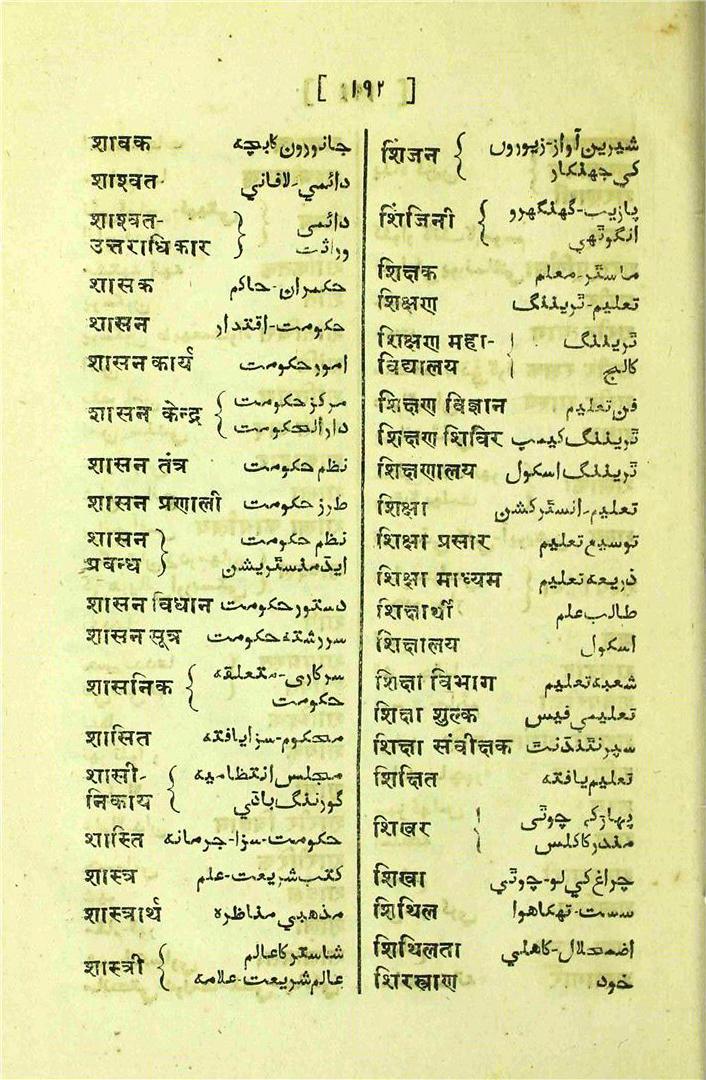 [ ۱۹۲ ]
शावक جانوروں کا بچہ
शाश्वत دائمي-لافاني
शाश्वत- دائمی
उत्तराधिकार وراثت
शासक حکمران-حاکم
शासन حکومت-اقتدار
शासन कार्य امور حکومت
शासन केन्द्र مرکز حکومت
دارالحکومت
शासन तंत्र نظم حکومت
शासन प्रणाली طرز حکومت
शासन نظم حکومت
प्रबन्ध ایڈمنسٹریشن
शासन विधान دستور حکومت
शासन सूत्र سررشتۂ حکومت
शासनिक سرکاری-متعلقه
حکومت
शासित محکوم-سزا یافته
शासी- مجلس انتظامیه
निकाय گورننگ باڈي
शास्ति حکومت-سزا-جرمانه
शास्त्र کتب شریعت-علم
शास्त्रार्थ مذهبي مناظره
शास्त्री شاستر کا عالم
عالم شریعت-علامه
शिंजन شیریں آواز-زیوروں
کي جھنکار
शिंजिनी پازیب-گھنگھرو
انگوٹھي
शिक्षक ماسٹر-معلم
शिक्षण تعلیم-ٹریننگ
शिक्षण महा- ٹریننگ
विद्यालय کالج
शिक्षण विज्ञान فن تعلیم
शिक्षण शिविर ٹریننگ کیمپ
शिक्षणालय ٹریننگ اسکول
शिक्षा تعلیم-انسٹرکشن
शिक्षा प्रसार توسیع تعلیم
शिक्षा माध्यम ذریعه تعلیم
शिक्षार्थी طالب علم
शिक्षालय اسکول
शिक्षा विभाग شعبه تعلیم
शिक्षा शुल्क تعلیمي فیس
शिक्षा संवीक्षक سپرنٹنڈنٹ
शिक्षित تعلیم یافته
शिखर پہاڑ کي چوٹی
مندر کا کلس
शिखा چراغ کي لو-چوٹي
शिथिल سست-تھکا هوا
शिथिलता اضمحلال-کاهلي
शिरस्त्राण خود